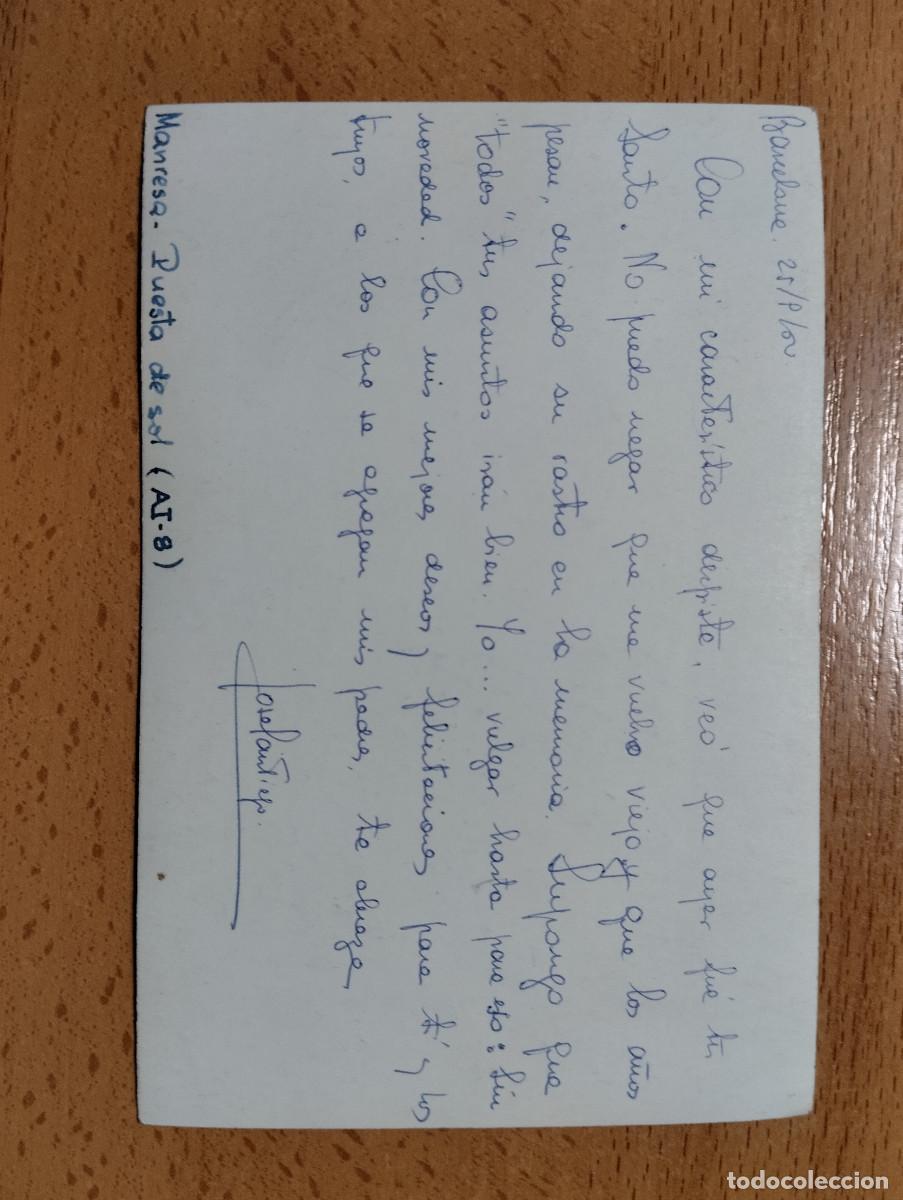 Barcelona. 25/
Con mi característico despiste, veo que ayer fué tu
Santo. No puedo negar que me vuelvo viejo y que los años
pesan, dejando su rastro en la memoria. Supongo que
"todos" tus asuntos irán bien. Yo... vulgar hasta para eso: Sin
novedad. Con mis mejores deseos y felicitaciones para tí y los
tuyos, a los que se agregan mis padres, te abraza,
Manresa. Puesta de sol (AI-8)
todocoleccion